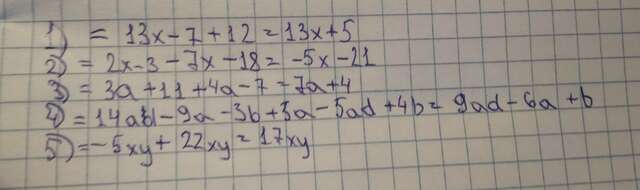 1) = 13x - 7 + 12 = 13x + 5
2) = 2x - 3 - 7x - 18 = -5x - 21
3) = 3a + 11 + 4a - 7 = 7a + 4
4) = 14ad - 9a - 3b + 3a - 5ad + 4b = 9ad - 6a + b
5) = -5xy + 22xy = 17xy